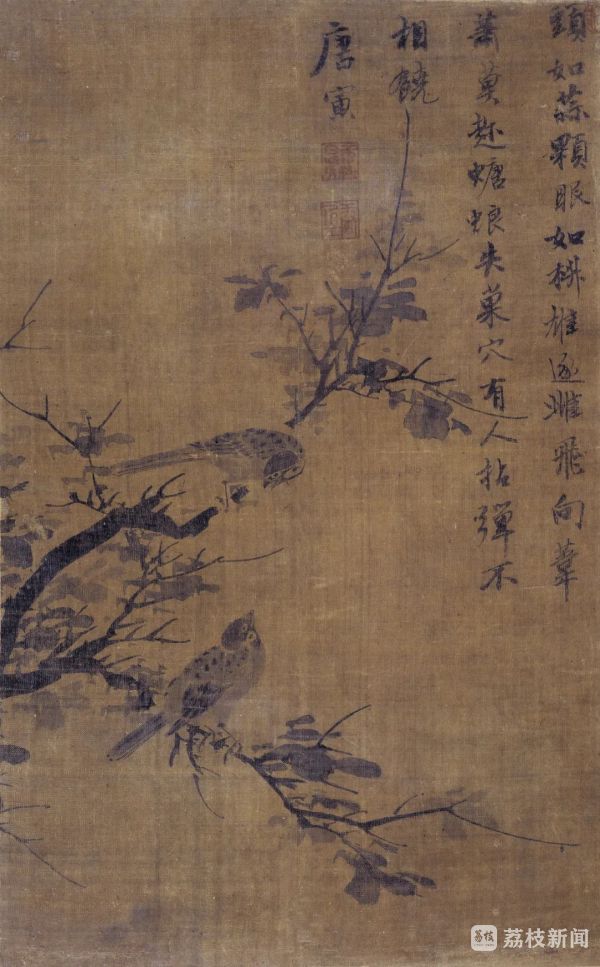 頭如蒜顆眼如椒雄逐雌飛向葦
蕭莫趂螗蜋失巢穴有人拈彈不
相饒
唐寅
荔枝新闻